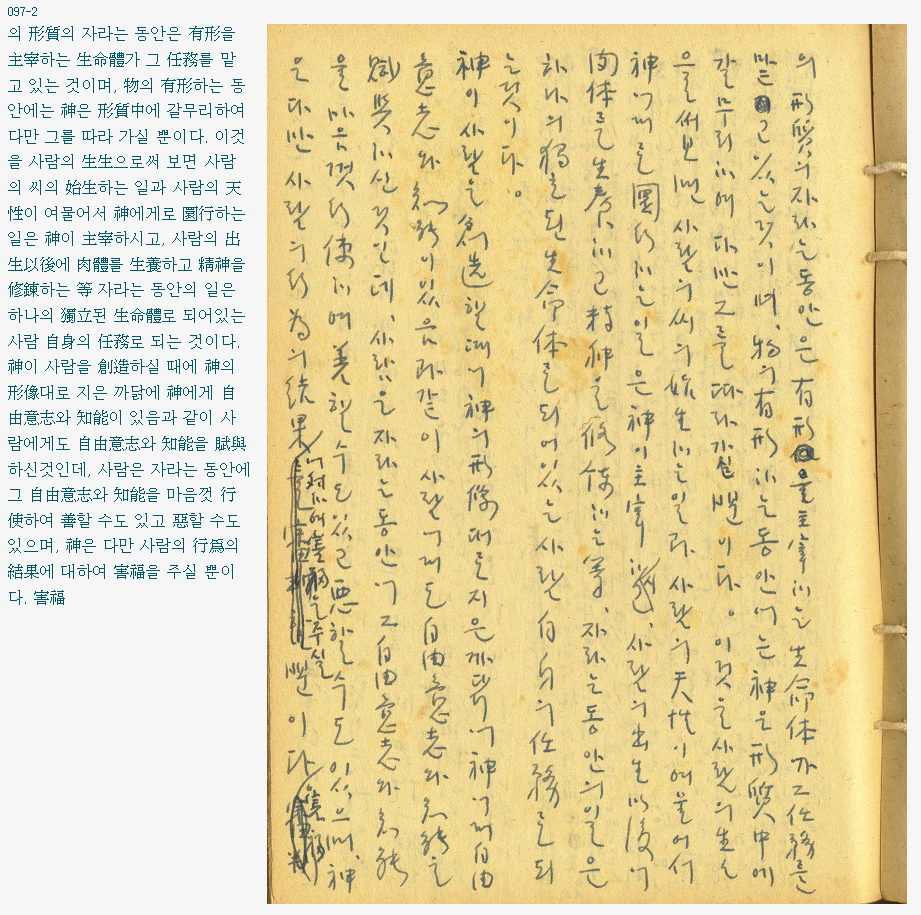 097-2
의 形質의 자라는 동안은 有形을
主宰하는 生命體가 그 任務를 맡
고 있는 것이며, 物의 有形하는 동
안에는 神은 形質中에 갈무리하여
다만 그를 따라 가실 뿐이다. 이것
을 사람의 生生으로써 보면 사람
의 씨의 始生하는 일과 사람의 天
性이 여물어서 神에게로 圜行하는
일은 神이 主宰하시고, 사람의 出
生以後에 肉體를 生養하고 精神을
修鍊하는 等 자라는 동안의 일은
하나의 獨立된 生命體로 되어있는
사람 自身의 任務로 되는 것이다.
神이 사람을 創造하실 때에 神의
形像대로 지은 까닭에 神에게 自
由意志와 知能이 있음과 같이 사
람에게도 自由意志와 知能을 賦與
하신것인데, 사람은 자라는 동안에
그 自由意志와 知能을 마음껏 行
使하여 善할 수도 있고 惡할 수도
있으며, 神은 다만 사람의 行爲의
結果에 대하여 害福을 주실 뿐이
다. 害福
의 形質의 자라는 동안은 有形을 主宰하는 生命体가 그 任務를
맡고 있는 것이며, 物의 有形하는 동안에는 神은 形質中에
갈무리하여 다만 그를 따라가실 뿐이다. 이것을 사람의 生生으
로써 보면 사람의 씨의 始生하는 일과 사람의 天性이 여물어서
神에게로 圜行하는 일은 神이 主宰하시고, 사람의 出生以後에
肉体를 生養하고 精神을 修鍊하는 等, 자라는 동안의 일은
하나의 獨立된 生命体로 되어있는 사람 自身의 任務로 되
는 것이다.
神이 사람을 創造하실 때에 神의 形像대로 지은 까닭에 神에게 自由
意志와 知能이 있음과 같이 사람에게도 自由意志와 知能을
賦與하신 것인데, 사람은 자라는 동안에 그 自由意志와 知能
을 마음껏 行使하여 善할 수도 있고 惡할 수도 있으며, 神
은 다만 사람의 行為의 結果에 対하여 害福을 주실 뿐이다. 害福